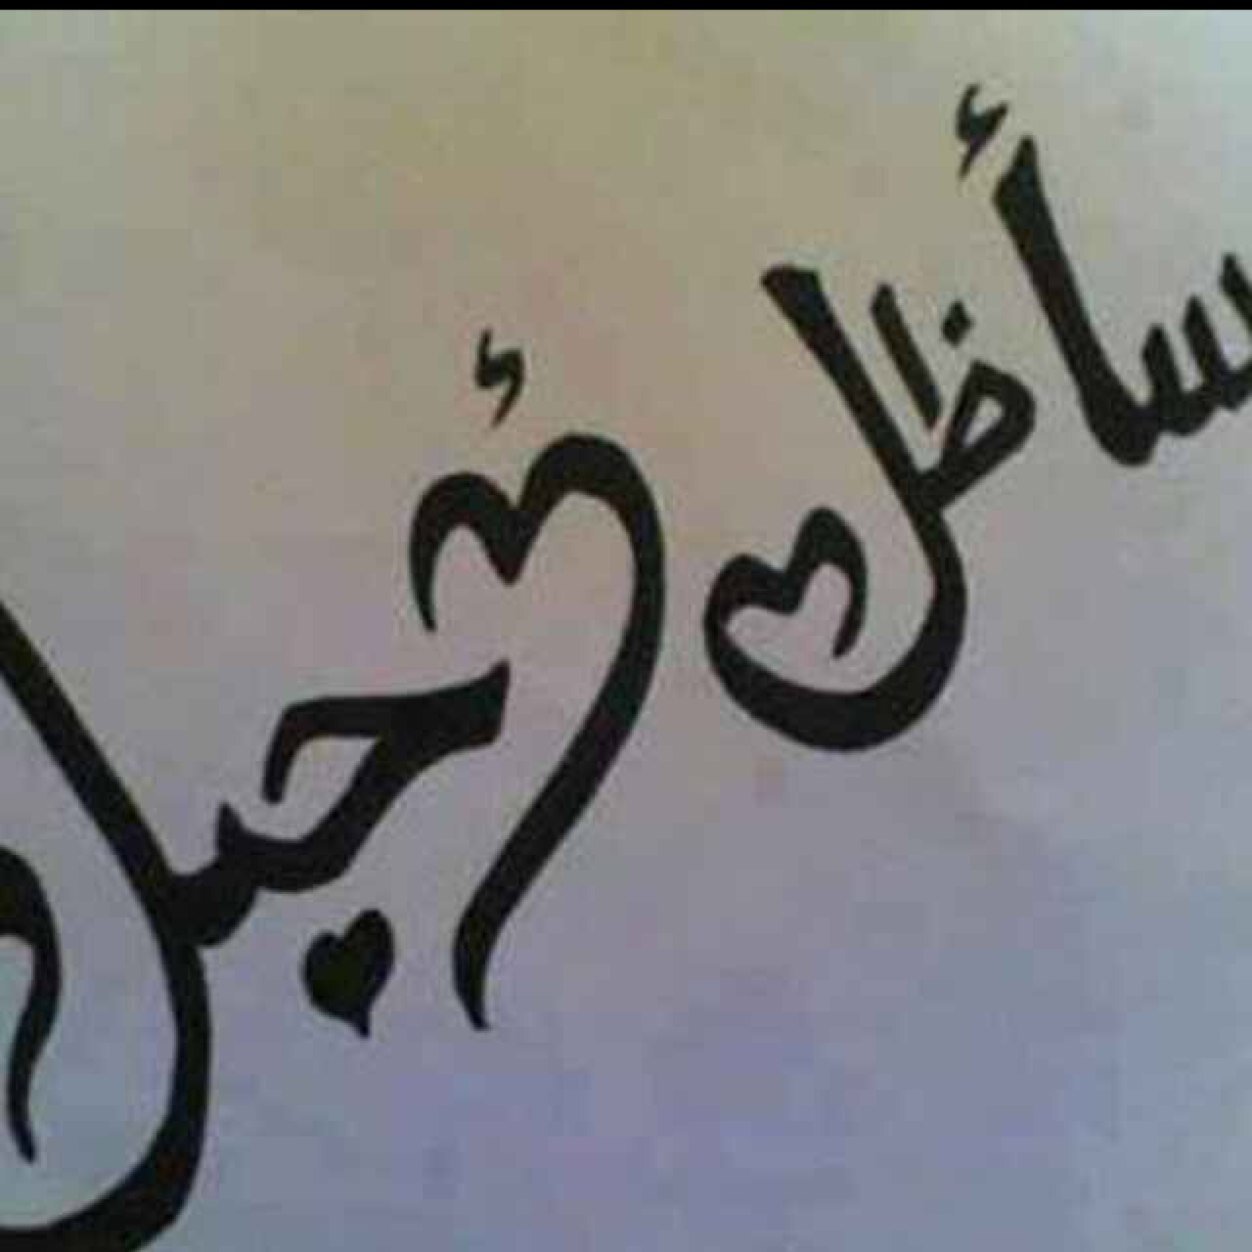 سأظل أحبك